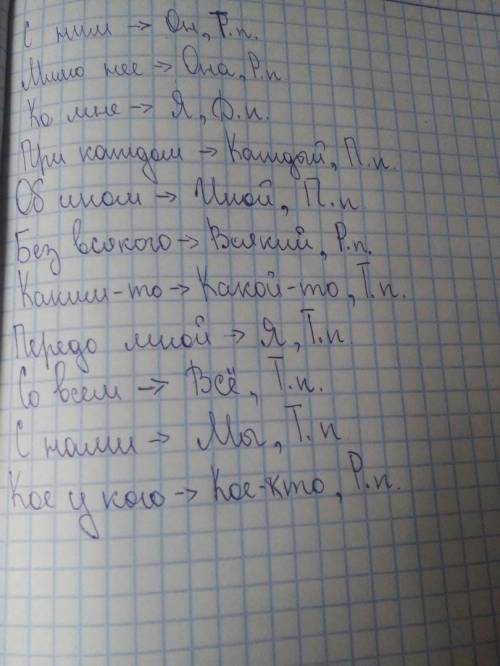 С ним → Он, Т.п.
Мимо нее → Она, Р.п
Ко мне → Я, Д.п.
При каждом → Каждый, П.п.
Об ином → Иной, П.п
Без всякого → Всякий, Р.п.
Каким-то → Какой-то, Т.п.
Передо мной → Я, Т.п
Со всем → Всё, Т.п.
С нами → Мы, Т.п
Кое у кого → Кое-кто, Р.п.